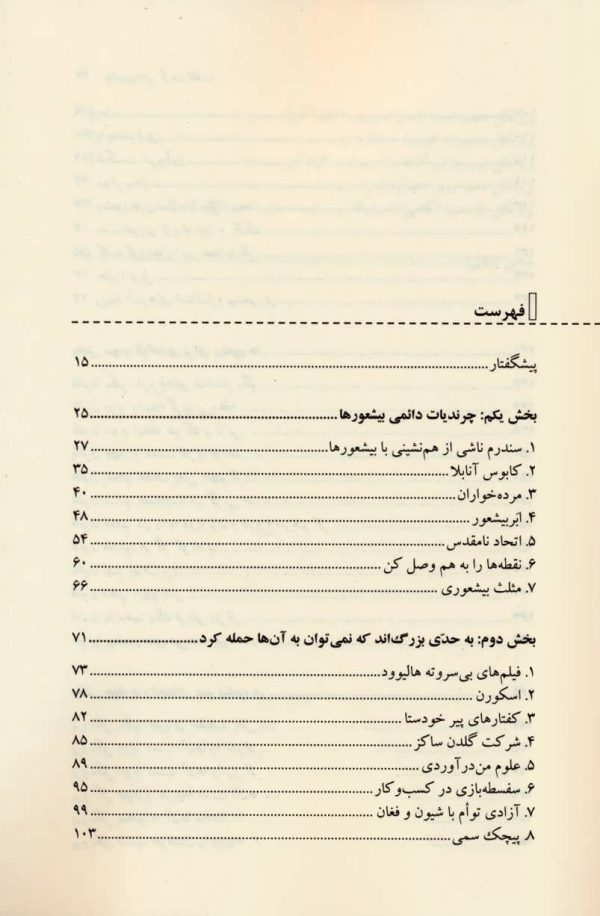 فهرست
پیشگفتار ۱۵
بخش یکم: چرندیات دائمی بیشعورها ۲۵
۱. سندرم ناشی از هم‌نشینی با بیشعورها ۲۷
۲. کابوس آنابلا ۳۵
۳. مرده‌خواران ۴۰
۴. ابَربیشعور ۴۸
۵. اتحاد نامقدس ۵۴
۶. نقطه‌ها را به هم وصل کن ۶۰
۷. مثلث بیشعوری ۶۶
بخش دوم: به حدّی بزرگ‌اند که نمی‌توان به آن‌ها حمله کرد ۷۱
۱. فیلم‌های بی‌سروته هالیوود ۷۳
۲. اسکورن ۷۸
۳. کفتارهای پیر خودستا ۸۲
۴. شرکت گلدن ساکز ۸۵
۵. علوم من‌درآوردی ۸۹
۶. سفسطه‌بازی در کسب‌وکار ۹۵
۷. آزادی توأم با شیون و فغان ۹۹
۸. پیچک سمی ۱۰۳